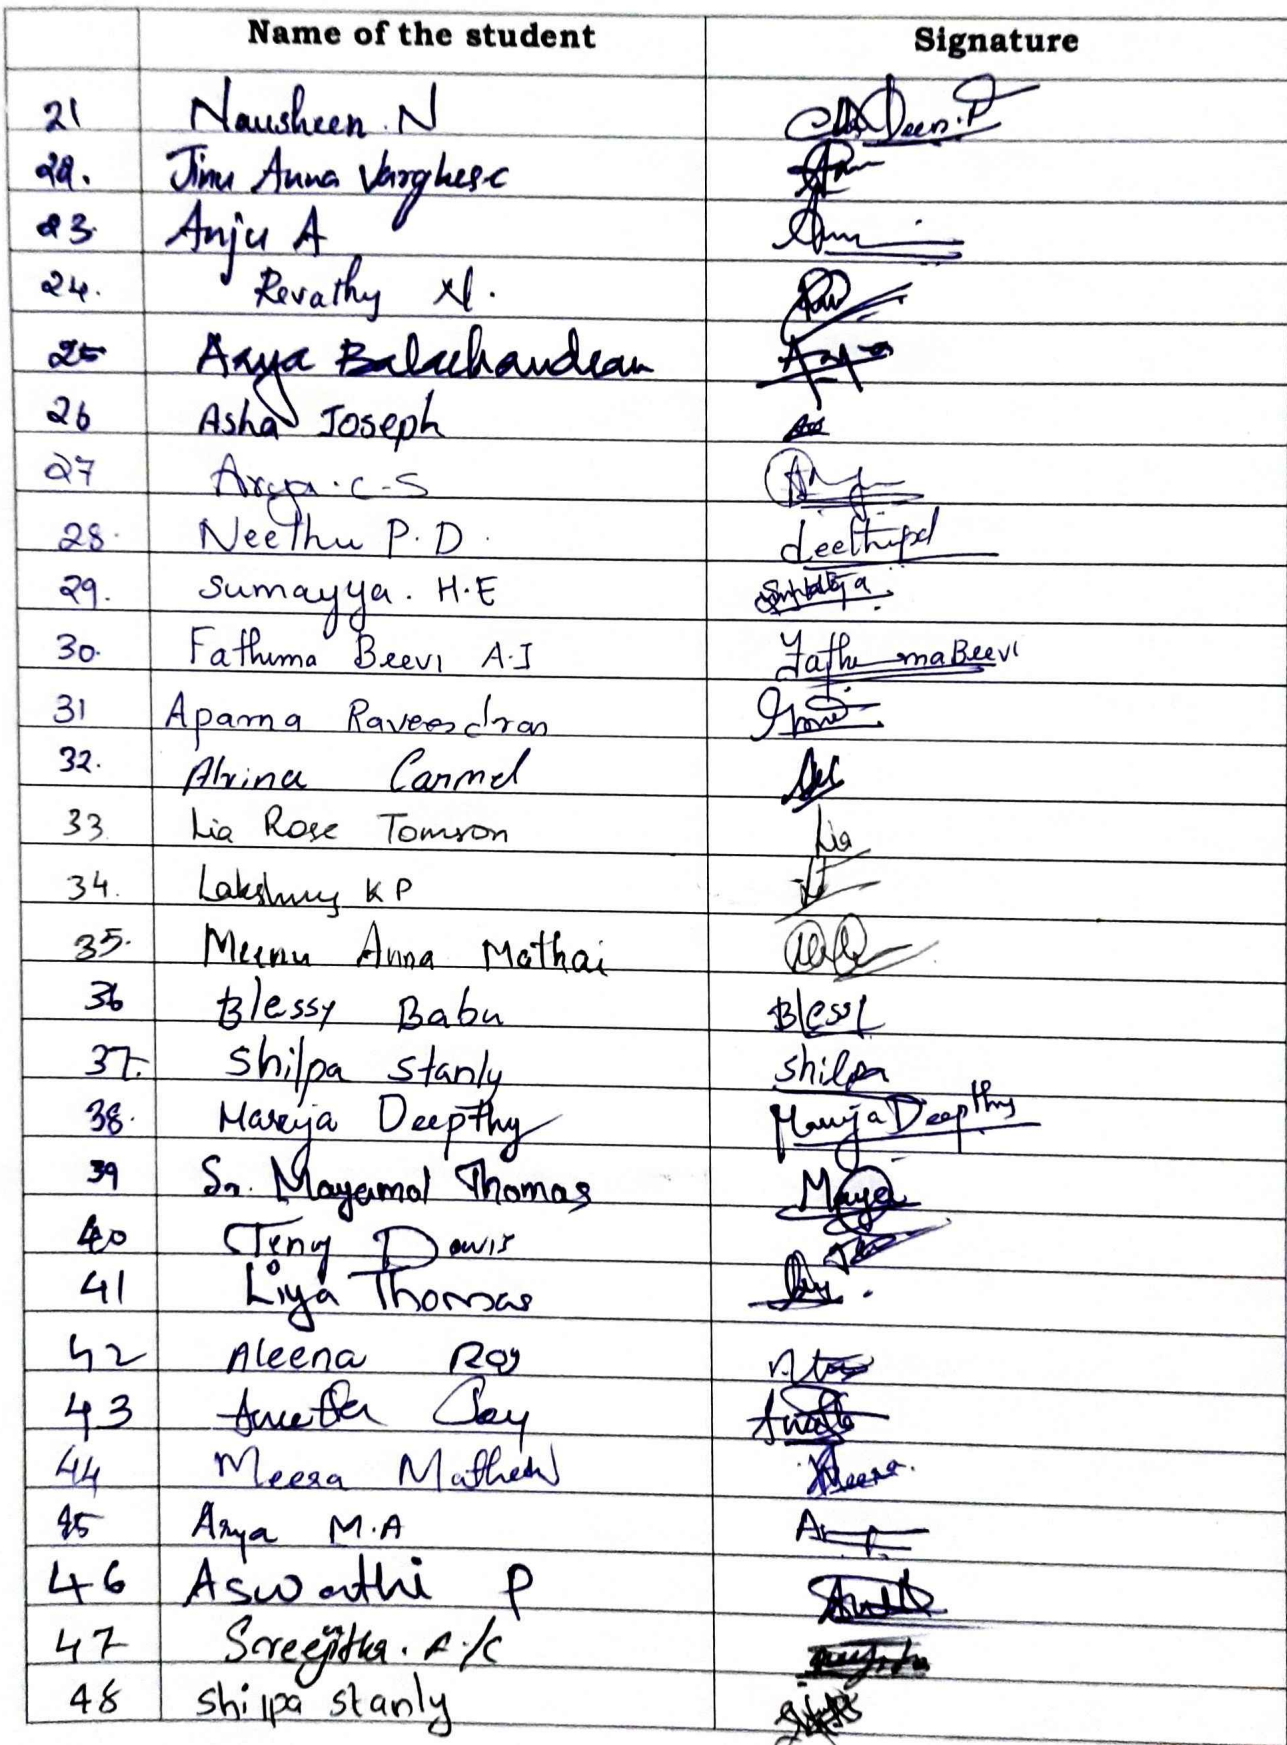 Name of the student Signature
21 Nausheen. N
22. Jinu Anna Varghese
23. Anju A
24. Revathy
25 Arya Balachandran Arya
26 Asha Joseph
27 Arya. C. S
28. Neethu P. D.
29. Sumayya. H.E
30. Fathima Beevi A.I Fathima Beevi
31 Aparna Raveendran
32. Carmel
33 Lia Rose Tomson Lia
34. Lakshmy K P
35. Meenu Anna Mathai
36 Blessy Babu Blessy
37. Shilpa Stanly Shilpa
38. Mareja Deepthy Mareja Deepthy
39 Sr. Mayamol Thomas Maya
40 Teny Davis
41 Liya Thomas
42 Aleena Roy
43
44 Meera Mathew Meera.
45 Arya M.A
46 Aswathi P
47 Sreejitha.
48 Shilpa Stanly